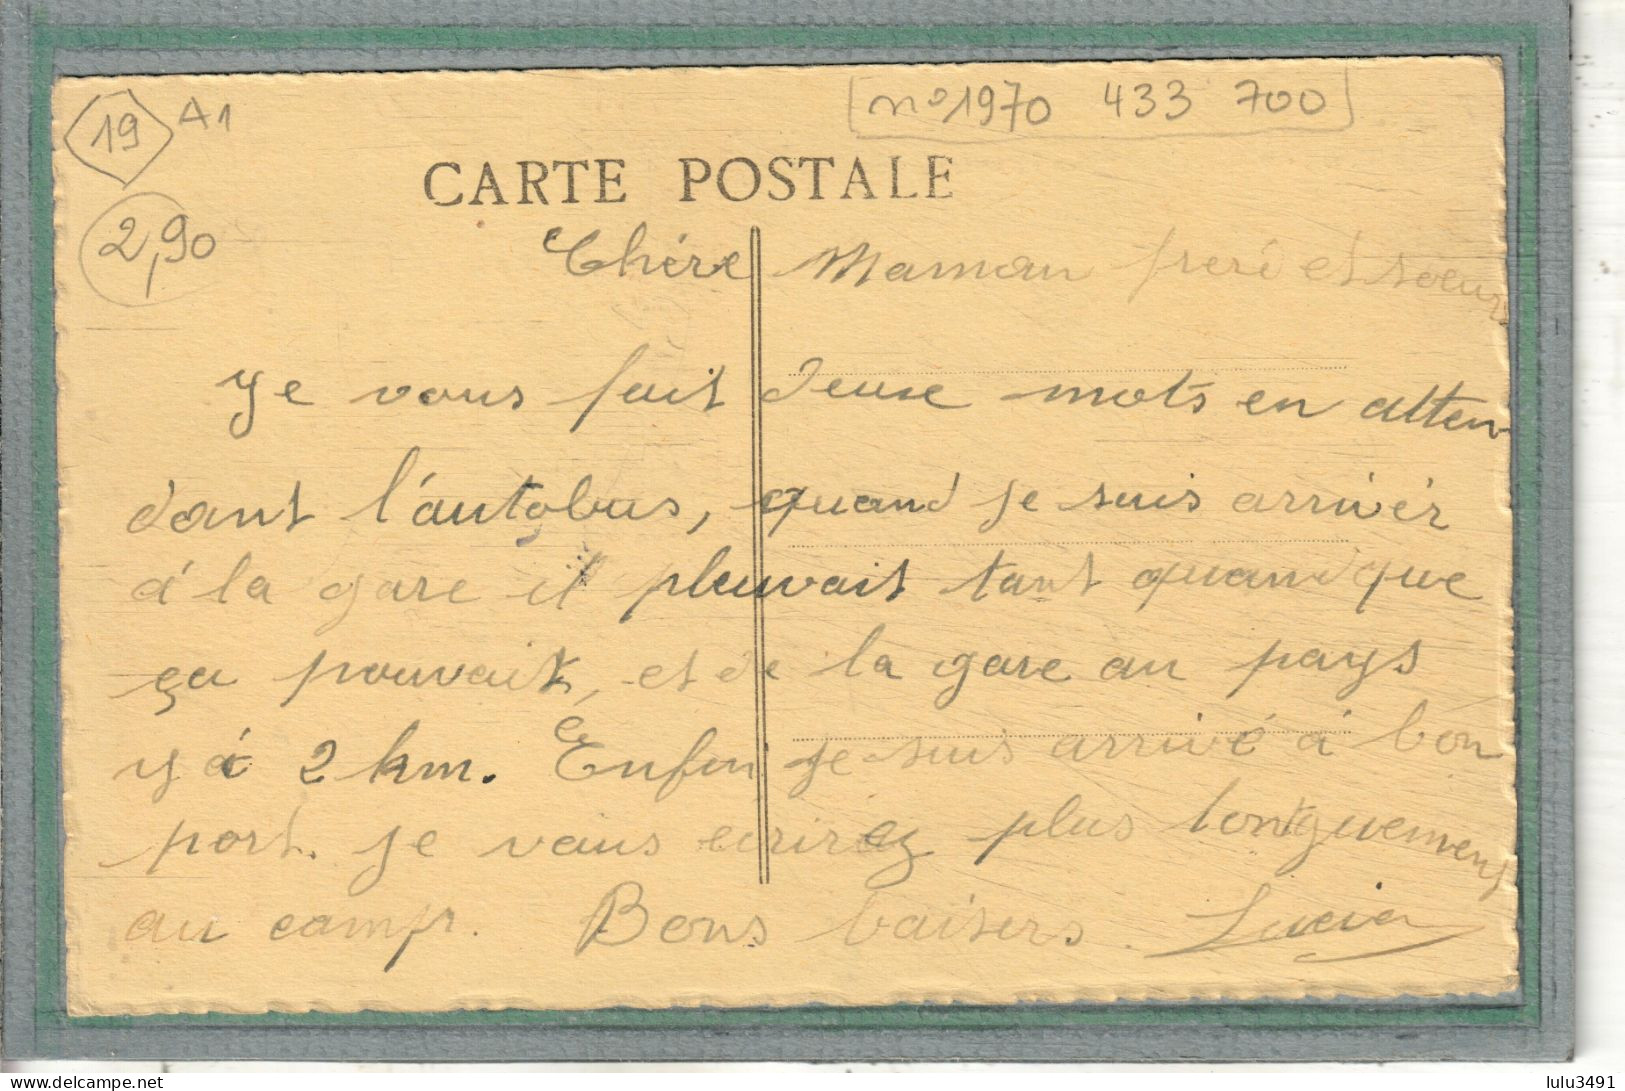 19 A1
n° 1970 433 700
2,90
CARTE POSTALE
Chére Maman freré et soeur
Je vous fait deuse mots en atten-
dant l'autobus, quand je suis arrivér
á la gare il pleuvait tant quand que
ça pouvait, et de la gare au pays
y á 2 km. Enfin je suis arrivé á bon
port. je vais ecrirez plus longuement
au camp. Bons baisers. Lucien
www.delcampe.net
lulu3491